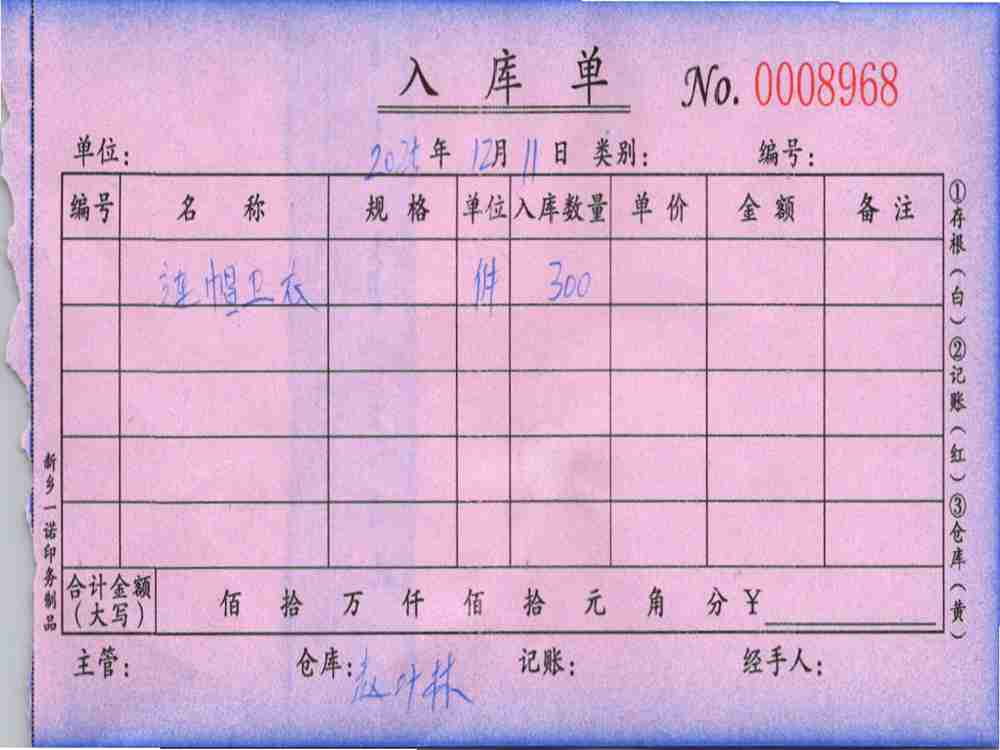 入库单 No. 0008968
单位： 2025年 12月 11日 类别： 编号：
编号 名称 规格 单位 入库数量 单价 金额 备注
连帽卫衣 件 300
合计金额（大写） 佰 拾 万 仟 佰 拾 元 角 分 ¥
主管： 仓库：赵叶林 记账： 经手人：
①存根（白）②记账（红）③仓库（黄）
新乡一诺印务制品